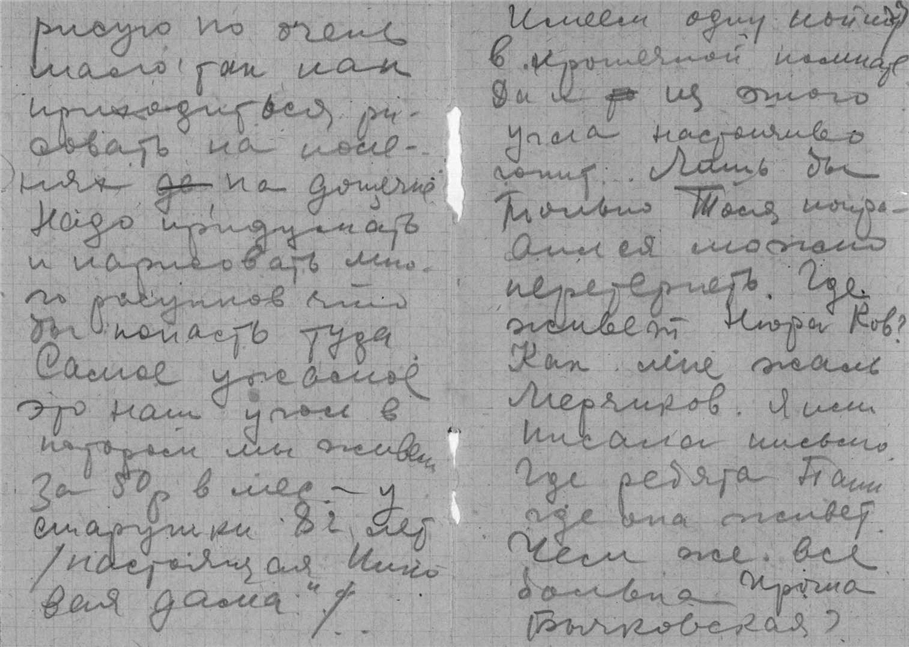 рисую но очень
мало так как
приходиться ри-
совать на коле-
нях де на дощечке
Надо придумать
и нарисовать мно-
го рисунков что
бы попасть туда
Самое ужасное
это наш угол в
котором мы живем
За 50р в мес – у
старушки 82 лет
/настоящая Пико
вая дама"/
Имеем одну койку
в крошечной комнате
Да и из этого
угла настойчиво
гонит. Лишь бы
только Тося попра-
вился можно
перетерпеть. Где
живет Нюра Ков?
Как мне жаль
Мерчиков. Я им
писала письмо.
Где ребята Пани
где она живет.
Чем же все
больна Ироша
Бычковская?